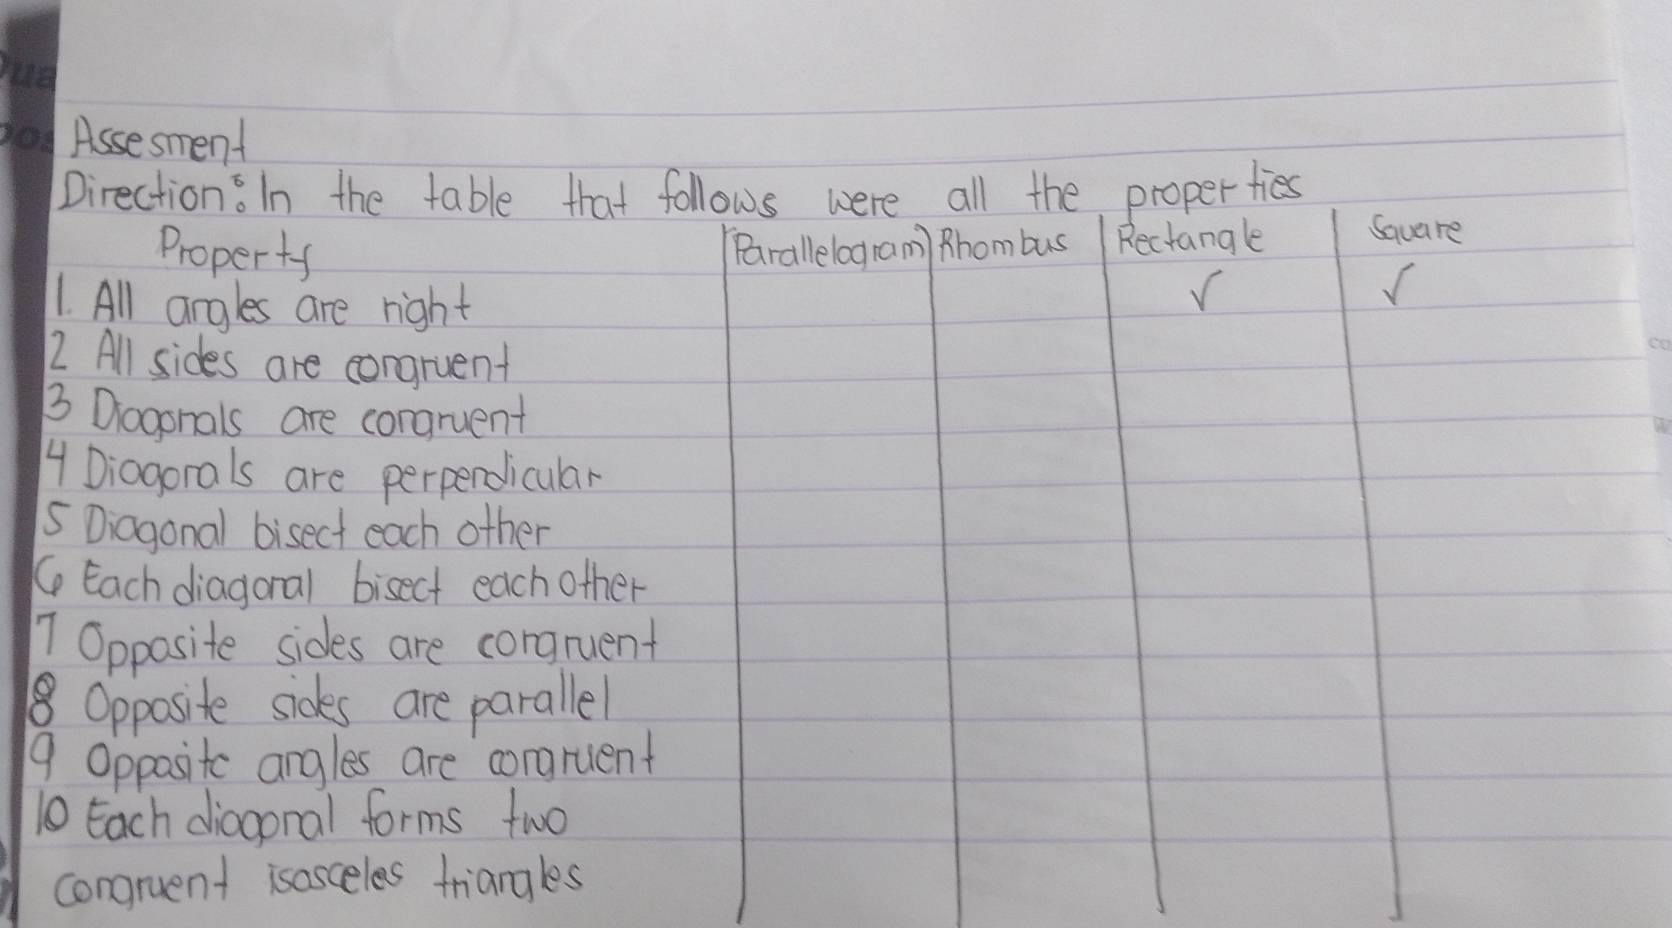 Assesment
Direction: In the table that follows were all the properties
Property Parallelogram Rhombus Rectangle Square
1. All angles are right √ √
2 All sides are congruent
3 Diagonals are congruent
4 Diagonals are perpendicular
5 Diagonal bisect each other
6 Each diagonal bisect each other
7 Opposite sides are congruent
8 Opposite sides are parallel
9 Opposite angles are congruent
10 Each diagonal forms two
congruent isosceles triangles